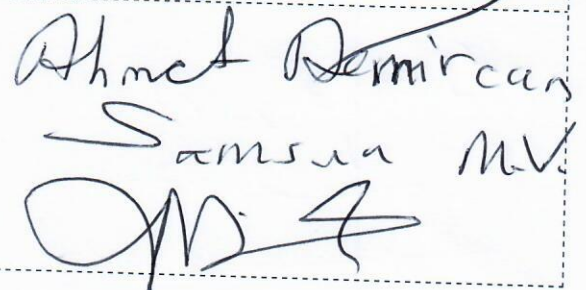 Ahmet Demircan
Samsun M.V.